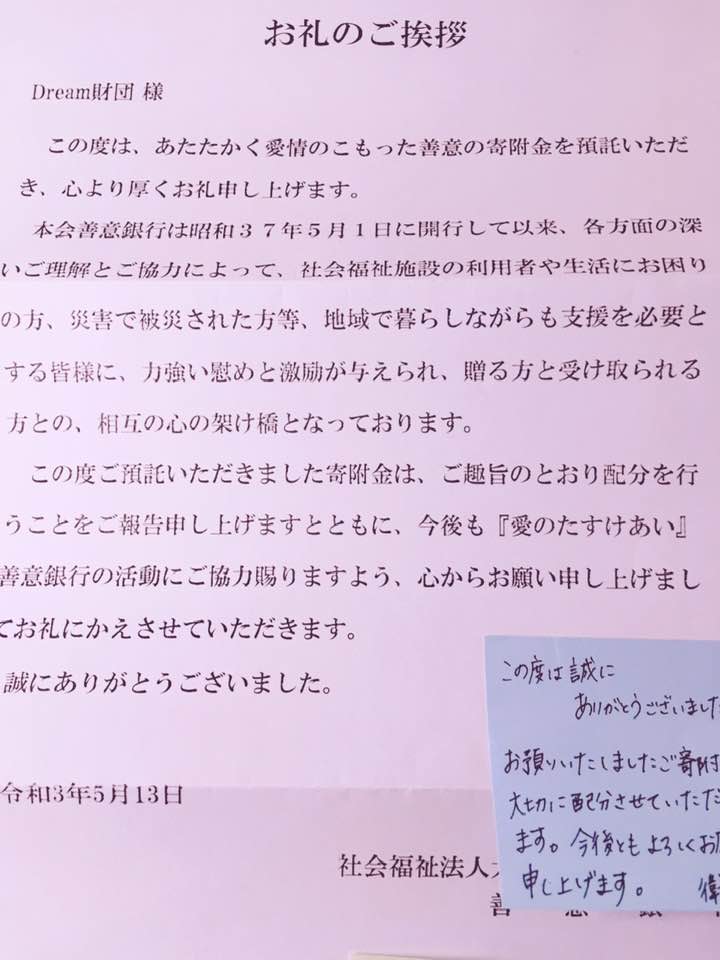 お礼のご挨拶
Dream財団 様
この度は、あたたかく愛情のこもった善意の寄附金を預託いただ
き、心より厚くお礼申し上げます。
本会善意銀行は昭和３７年５月１日に開行して以来、各方面の深
いご理解とご協力によって、社会福祉施設の利用者や生活にお困り
の方、災害で被災された方等、地域で暮らしながらも支援を必要と
する皆様に、力強い慰めと激励が与えられ、贈る方と受け取られる
方との、相互の心の架け橋となっております。
この度ご預託いただきました寄附金は、ご趣旨のとおり配分を行
うことをご報告申し上げますとともに、今後も『愛のたすけあい』
善意銀行の活動にご協力賜りますよう、心からお願い申し上げまし
てお礼にかえさせていただきます。
誠にありがとうございました。
令和3年5月13日
社会福祉法人
善
この度は誠に
ありがとうございました
お預りいたしましたご寄附
大切に配分させていただ
ます。今後ともよろしくお
申し上げます。